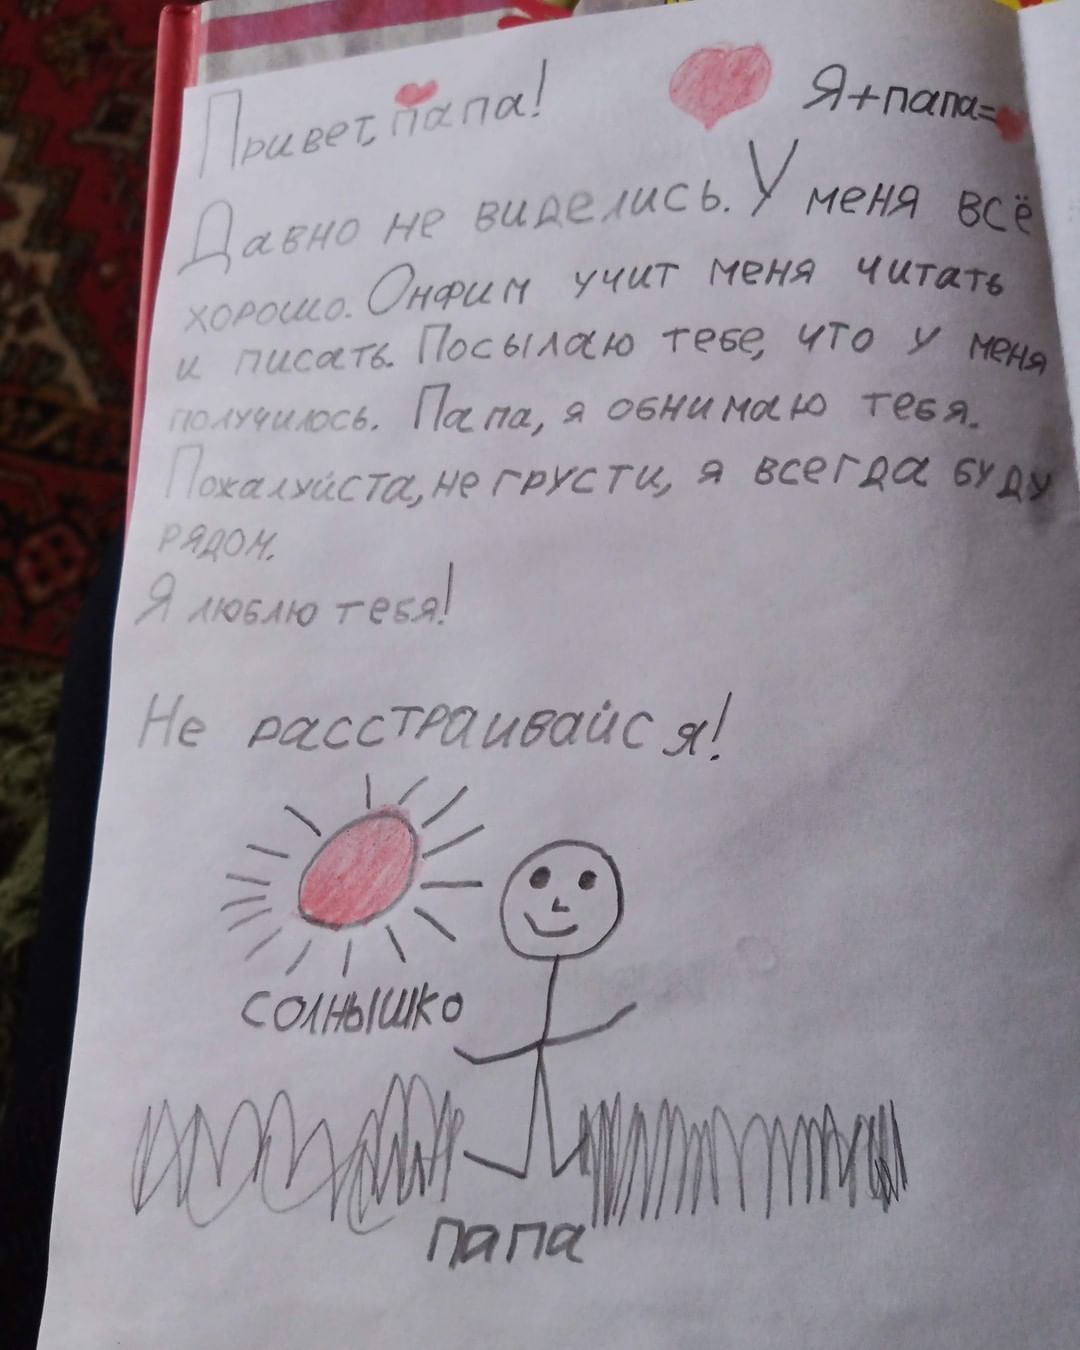 Привет, папа!
Я+папа=
Давно не виделись. У меня всё
хорошо. Онфим учит меня читать
и писать. Посылаю тебе, что у меня
получилось. Папа, я обнимаю тебя.
Пожалуйста, не грусти, я всегда буду
рядом.
Я люблю тебя!
Не расстраивайся!
солнышко
папа